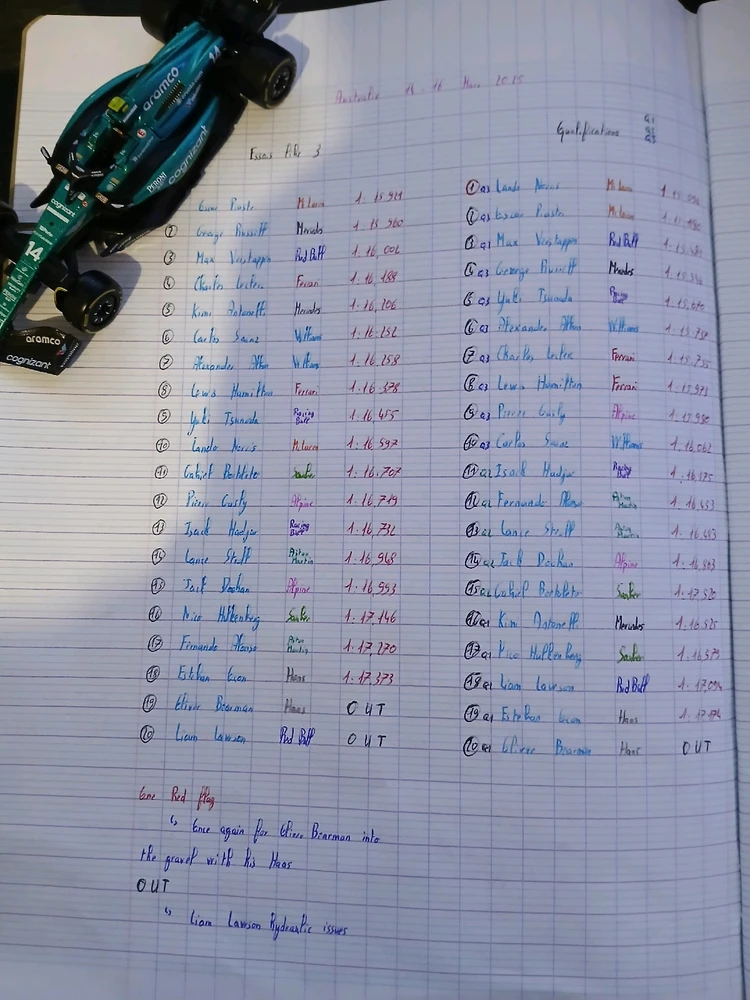 aramco
14
cognizant
PERONI
cognizant
14
aramco
cognizant
Australie 14 - 16 Mars 2025
Essais libre 3
Oscar Piastri McLaren 1.15.921
② George Russell Mercedes 1.15.960
③ Max Verstappen Red Bull 1.16.002
④ Charles Leclerc Ferrari 1.16.188
⑤ Kimi Antonelli Mercedes 1.16.206
⑥ Carlos Sainz Williams 1.16.252
⑦ Alexander Albon Williams 1.16.258
⑧ Lewis Hamilton Ferrari 1.16.378
⑨ Yuki Tsunoda Racing Bull 1.16.455
⑩ Lando Norris McLaren 1.16.597
⑪ Gabriel Bortoleto Sauber 1.16.707
⑫ Pierre Gasly Alpine 1.16.719
⑬ Isack Hadjar Racing Bull 1.16.732
⑭ Lance Stroll Aston Martin 1.16.948
⑮ Jack Doohan Alpine 1.16.993
⑯ Nico Hulkenberg Sauber 1.17.146
⑰ Fernando Alonso Aston Martin 1.17.270
⑱ Esteban Ocon Haas 1.17.373
⑲ Oliver Bearman Haas OUT
⑳ Liam Lawson Red Bull OUT
Qualifications Q1
Q2
Q3
① Q3 Lando Norris McLaren 1.15.096
② Q3 Oscar Piastri McLaren 1.15.180
③ Q3 Max Verstappen Red Bull 1.15.481
④ Q3 George Russell Mercedes 1.15.546
⑤ Q3 Yuki Tsunoda Racing Bull 1.15.670
⑥ Q3 Alexander Albon Williams 1.15.737
⑦ Q3 Charles Leclerc Ferrari 1.15.755
⑧ Q3 Lewis Hamilton Ferrari 1.15.973
⑨ Q3 Pierre Gasly Alpine 1.15.980
⑩ Q3 Carlos Sainz Williams 1.16.062
⑪ Q2 Isack Hadjar Racing Bull 1.16.175
⑫ Q2 Fernando Alonso Aston Martin 1.16.453
⑬ Q2 Lance Stroll Aston Martin 1.16.483
⑭ Q2 Jack Doohan Alpine 1.16.863
⑮ Q2 Gabriel Bortoleto Sauber 1.17.520
⑯ Q1 Kimi Antonelli Mercedes 1.16.525
⑰ Q1 Nico Hulkenberg Sauber 1.16.579
⑱ Q1 Liam Lawson Red Bull 1.17.094
⑲ Q1 Esteban Ocon Haas
⑳ Q1 Oliver Bearman Haas OUT
One Red flag
↳ Once again for Oliver Bearman into
the gravel with his Haas
OUT
↳ Liam Lawson Hydraulic issues